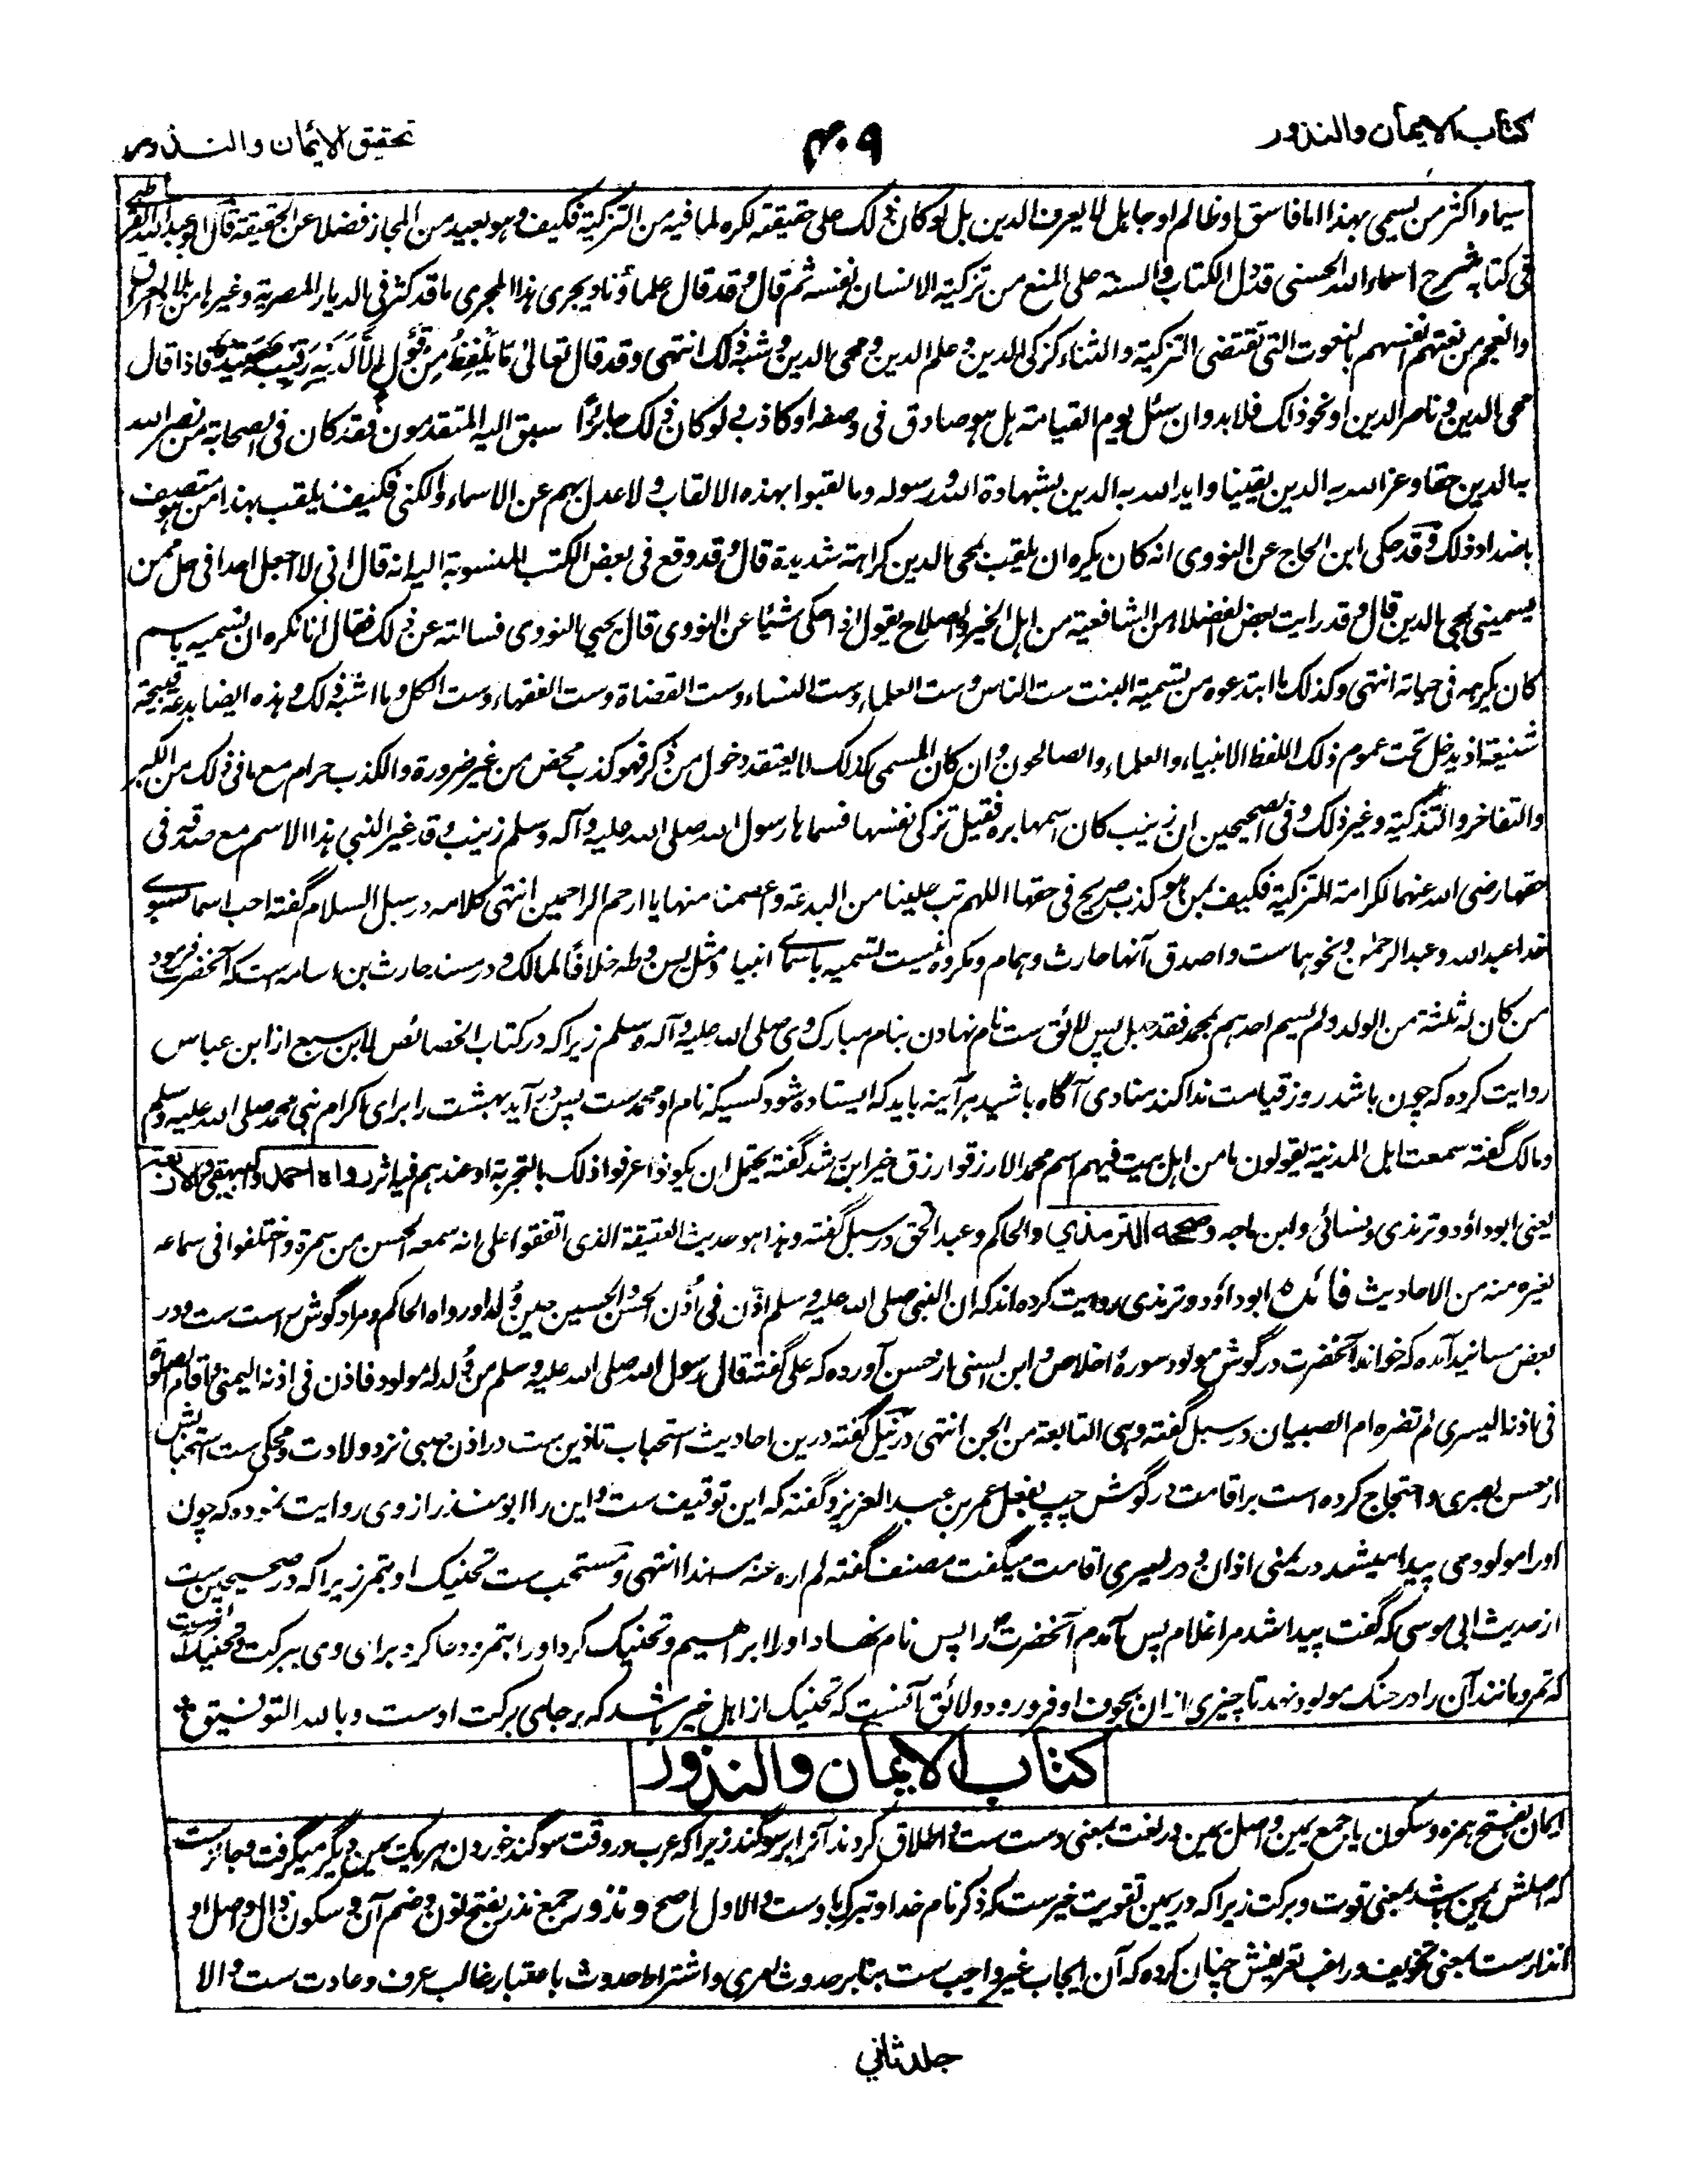 کتاب الایمان والنذور
۴۰۹
تحقیق الایمان والنذور
سیما واکثر من یسمی بهذا اما فاسق او ظالم او جاهل لا یعرف الدین بل لو کان ذلک علی حقیقته لکره لما فیه من التزکیة فکیف وهو بعید من المجاز فضلا عن الحقیقة قال ابو عبدالله القرطبی
فی کتابه شرح اسماء الله الحسنی قد دل الکتاب والسنة علی المنع من تزکیة الانسان نفسه ثم قال وقد قال علماؤنا ویجری هذا المجری ما قد کثر فی الدیار المصریة وغیرها من بلاد العراق
والعجم من نعتهم انفسهم بالنعوت التی تقتضی التزکیة والثناء کزکی الدین وعلم الدین ومحی الدین وشبه ذلک انتهی وقد قال تعالی مَا یَلْفِظُ مِنْ قَوْلٍ إِلَّا لَدَیْهِ رَقِیبٌ عَتِیدٌ فاذا قال
محی الدین وناصر الدین او نحو ذلک فلا بد وان یسئل یوم القیامة هل هو صادق فی وصفه او کاذب لو کان ذلک جائزا سبق الیه المتقدمون فقد کان فی الصحابة من نصر الله
به الدین حقا وعز الله به الدین یقینا واید الله به الدین بشهادة الله ورسوله وما لقبوا بهذه الالقاب ولا عدل بهم عن الاسماء والکنی فکیف یلقب بهذا من هو متصف
باضداد ذلک وقد حکی ابن الحاج عن النووی انه کان یکره ان یلقب بمحی الدین کراهة شدیدة قال وقد وقع فی بعض الکتب المنسوبة الیه انه قال انی لا اجعل احدا فی حل ممن
یسمینی بمحی الدین قال وقد رایت بعض الفضلاء من الشافعیة من اهل الخیر والصلاح یقول اذا حکی شئیا عن النووی قال یحیی النووی فسالته عن ذلک فقال انا نکره ان نسمیه باسم
کان یکرهه فی حیاته انتهی وکذلک ما ابتدعوه من تسمیة البنت ست الناس وست العلماء وست النساء وست القضاة وست الفقهاء وست الکل وما اشبه ذلک وهذه ایضا بدعة قبیحة
شنیعة اذ یدخل تحت عموم ذلک اللفظ الانبیاء والعلماء والصالحون وان کان المسمی کذلک لا یعتقد دخول من ذکر فهو کذب محض من غیر ضرورة والکذب حرام مع ما فی ذلک من الکبر
والتفاخر والتذکیة وغیر ذلک وفی الصحیحین ان زینب کان اسمها برة فقیل تزکی نفسها فسماها رسول الله صلی الله علیه وآله وسلم زینب وقد غیر النبی هذا الاسم مع صدقه فی
حقها رضی الله عنها لکراهة التزکیة فکیف بمن هو کذب صریح فی حقها اللهم تب علینا من البدعة واعصمنا منها یا ارحم الراحمین انتهی کلامه در سبل السلام گفته احب اسماء بسوے
خدا عبد الله وعبد الرحمن ونحوهماست واصدق آنها حارث وهمام ومکروه نیست تسمیه باسماے انبیاء ومثل یسن وطه خلافا لمالک ودر مسند حارث بن اسامه ست که آنحضرت فرمود
من کان له ثلثة من الولد ولم یسم احدهم بمحمد فقد جهل پس لائق ست نام نهادن بنام مبارک وی صلی الله علیه وآله وسلم زیراکه در کتاب الخصائص لابن سبع از ابن عباس
روایت کرده که چون باشد روز قیامت ندا کند منادی آگاه باشید هر آینه باید که ایستاده شود کسیکه نام او محمدست پس در آید بهشت را برای اکرام نبی محمد صلی الله علیه وسلم
ومالک گفته سمعت اهل المدینة یقولون ما من اهل بیت فیهم اسم محمد الا رزقوا رزق خیر ابن رشد گفته یحتمل ان یکونوا عرفوا ذلک بالتجربة او عندهم فیه اثر رواه احمد والاربعة
یعنی ابوداؤد وترمذی ونسائی وابن ماجه وصححه الترمذی والحاکم وعبد الحق در سبل گفته وهذا هو حدیث العقیقة الذی اتفقوا علی انه سمعه الحسن من سمرة واختلفوا فی سماعه
لغیره منه من الاحادیث فائده ابوداؤد وترمذی روایت کرده اند که ان النبی صلی الله علیه وسلم اذن فی اذن الحسن والحسین حین ولدا ورواه الحاکم ومراد گوش راست ست ودر
بعض مسانید آمده که خواند آنحضرت در گوش مولود سورۂ اخلاص وابن السنی از حسن آورده که علی گفته قال رسول الله صلی الله علیه وسلم من ولد له مولود فاذن فی اذنه الیمنی واقام الصلوة
فی اذنه الیسری لم تضره ام الصبیان در سبل گفته وهی التابعة من الجن انتهی در نیل گفته درین احادیث استحباب تاذین ست در اذن صبی نزد ولادت ومحکی ست استحبابش
از حسن بصری واحتجاج کرده است بر اقامت در گوش چپ بفعل عمر بن عبد العزیز وگفته که این توقیف ست واین را ابو منذر از وی روایت نموده که چون
او را مولودمی پیدا میشد در یمنی اذان ودر یسری اقامت میگفت مصنف گفته لم اره عنه مسندا انتهی ومستحب ست تحنیک او بتمر زیراکه در صحیحین ست
از حدیث ابی موسی که گفت پیدا شد مرا غلام پس آمدم آنحضرت را پس نام نهاد او را ابراهیم وتحنیک کرد او را بتمر ودعا کرد برای وی ببرکت وتحنیک آنست
که تمر ومانند آن را در حنک مولود نهد تا چیزی از ان بجوف او فرو رود ولائق آنست که تحنیک از اهل خیر باشد که برجای برکت اوست وبالله التوفیق
کتاب الایمان والنذور
ایمان بفتح همزه وسکون یا جمع یمین واصل یمین در لغت بمعنی دست ست واطلاق کردند آنرا بر سوگند زیراکه عرب در وقت سوگند خوردن هریک یمین دیگر میگرفت وجائزست
که اصلش یمین باشد بمعنی قوت وبرکت زیراکه در یمین تقویت خیرست که ذکر نام خدا وتبرک باوست والاول اصح ونذور جمع نذر بفتح نون وضم آن وسکون ذال واصل او
انذارست بمعنی تخویف وراغب تعریفش چنان کرده که آن ایجاب غیر واجب ست بنابر حدوث امری واشتراط حدوث باعتبار غالب عرف وعادت ست والا
جلد ثانی